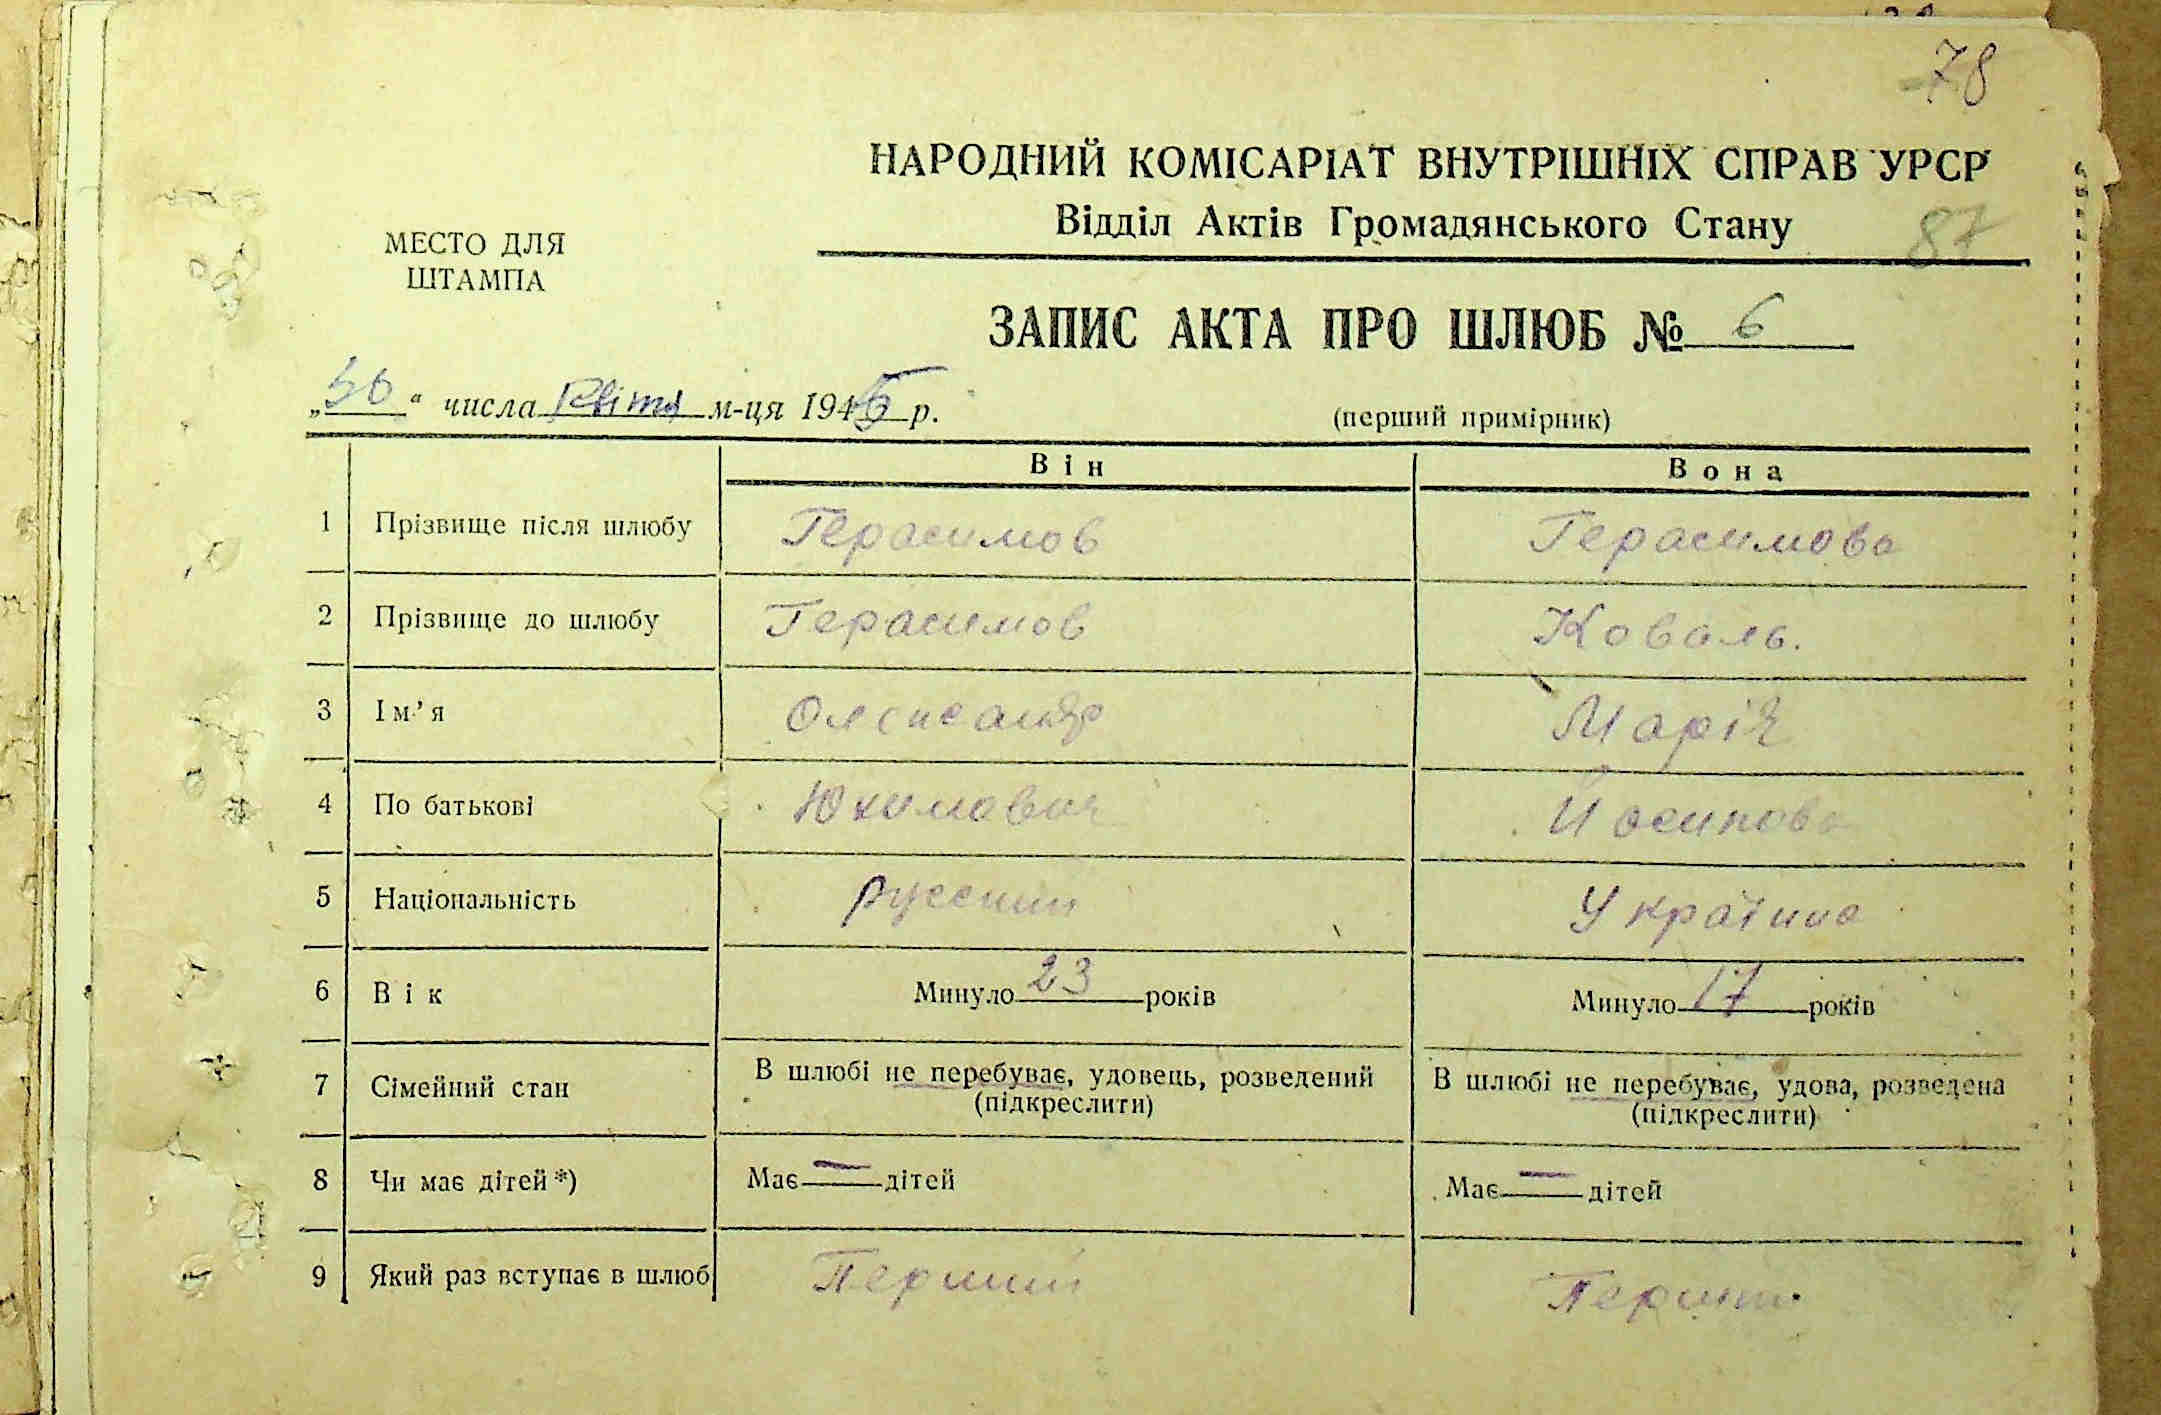 78
НАРОДНИЙ КОМІСАРІАТ ВНУТРІШНІХ СПРАВ УРСР
Відділ Актів Громадянського Стану
87
МЕСТО ДЛЯ
ШТАМПА
ЗАПИС АКТА ПРО ШЛЮБ № 6
„30“ числа Квітня м-ця 1945 р.
(перший примірник)
Він Вона
1 Прізвище після шлюбу Герасимов Герасимова
2 Прізвище до шлюбу Герасимов Коваль.
3 Ім'я Олександр Марія
4 По батькові Юхимович Йосипова
5 Національність русский Україн
6 Вік Минуло 23 років Минуло 17 років
7 Сімейний стан В шлюбі не перебуває, удовець, розведений В шлюбі не перебуває, удова, розведена
(підкреслити) (підкреслити)
8 Чи має дітей*) Має — дітей Має — дітей
9 Який раз вступає в шлюб Перший Перший